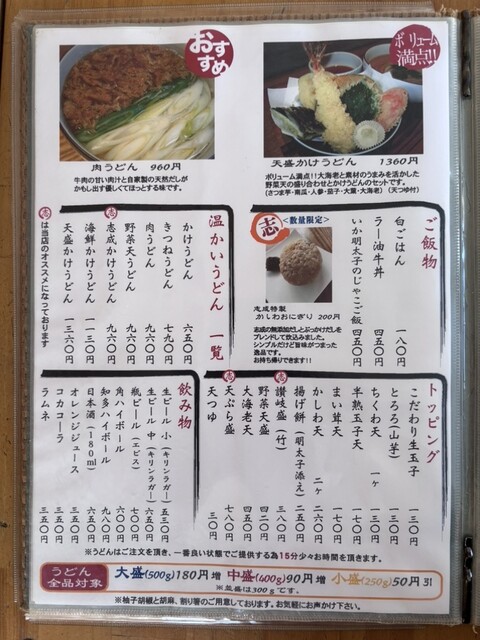 おすすめ
ボリューム満点!!
肉うどん 960円
牛肉の甘い肉汁と自家製の天然だしが
かもし出す優しくてほっとする味です。
天盛かけうどん 1360円
ボリューム満点!!大海老と素材のうまみを活かした
野菜天の盛り合わせとかけうどんのセットです。
(さつま芋・南瓜・人参・茄子・大葉・大海老) (天つゆ付)
ご飯物
白ごはん 一八〇円
ラー油牛丼 四五〇円
いか明太子のじゃこご飯 四五〇円
志
<数量限定>
志成特製
かしわおにぎり 200円
志成の無添加だしとぶっかけだしを
ブレンドして炊込みました。
シンプルだけど旨味がつまった
逸品です。
お持ち帰りできます!!
温かいうどん 一覧
かけうどん 六五〇円
きつねうどん 七九〇円
肉うどん 九六〇円
野菜天うどん 九六〇円
志 志成かけうどん 九六〇円
海鮮かけうどん 一一三〇円
天盛かけうどん 一三六〇円
志 は当店のオススメになっております
トッピング
こだわり生玉子 一三〇円
とろろ(山芋)
ちくわ天 一ケ 一三〇円
半熟玉子天 一七〇円
まい茸天 一七〇円
かしわ天 二ケ 二六〇円
揚げ餅(明太子添え) 二五〇円
志 讃岐盛(竹) 三八〇円
野菜天盛 四五〇円
大海老天
志 天ぷら盛 七八〇円
天つゆ 三〇円
飲み物
生ビール 小(キリンラガー) 五三〇円
生ビール 中(キリンラガー) 六五〇円
瓶ビール(エビス) 七〇〇円
角ハイボール 六〇〇円
知多ハイボール 九〇〇円
日本酒(180ml) 六五〇円
オレンジジュース 三五〇円
コカコーラ 三五〇円
ラムネ 三五〇円
※うどんはご注文を頂き、一番良い状態でご提供する為15分少々お時間を頂きます。
うどん全品対象
大盛(500g)180円増 中盛(400g)90円増 小盛(250g)50円引
※並盛は300gです。
※柚子胡椒と胡麻、割り箸のご用意しております。お気軽にお声かけ下さい。